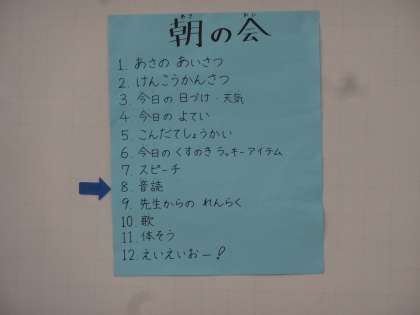 朝の会
1. あさの あいさつ
2. けんこうかんさつ
3 今日の 日づけ・天気
4 今日の よてい
5 こんだてしょうかい
6. 今日の くすのき ラッキーアイテム
7. スピーチ
8. 音読
9. 先生からの れんらく
10. 歌
11. 体そう
12. えいえいおー!